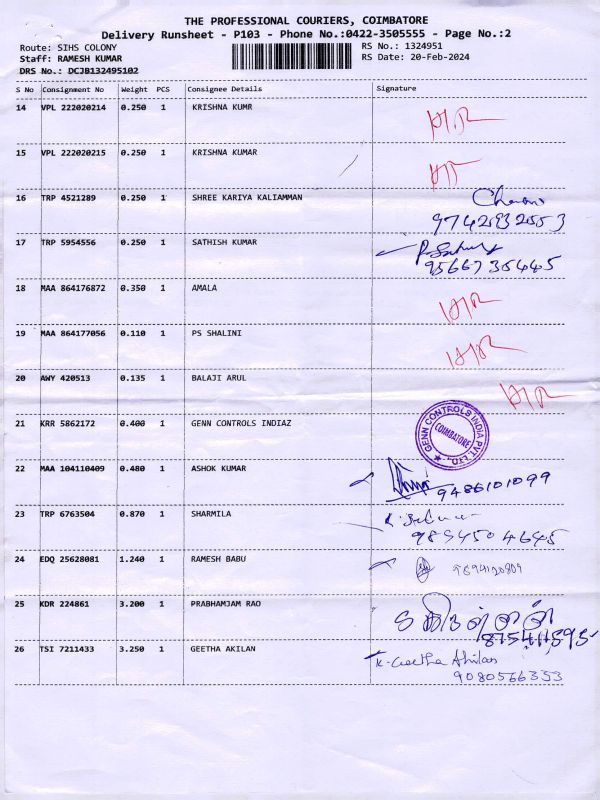 THE PROFESSIONAL COURIERS, COIMBATORE
Delivery Runsheet - P103 - Phone No.:0422-3505555 - Page No.:2
Route: SIHS COLONY RS No.: 1324951
Staff: RAMESH KUMAR RS Date: 20-Feb-2024
DRS No.: DCJB132495102
S No Consignment No Weight PCS Consignee Details Signature
14 VPL 222020214 0.250 1 KRISHNA KUMR
15 VPL 222020215 0.250 1 KRISHNA KUMAR
16 TRP 4521289 0.250 1 SHREE KARIYA KALIAMMAN
17 TRP 5954556 0.250 1 SATHISH KUMAR
9566735445
18 MAA 864176872 0.350 1 AMALA
19 MAA 864177056 0.110 1 PS SHALINI
20 AWY 420513 0.135 1 BALAJI ARUL
21 KRR 5862172 0.400 1 GENN CONTROLS INDIAZ
GENN CONTROLS INDIA PVT. LTD.
COIMBATORE
22 MAA 104110409 0.480 1 ASHOK KUMAR
9486101099
23 TRP 6763504 0.870 1 SHARMILA
9894504645
24 EDQ 25628081 1.240 1 RAMESH BABU
9894120809
25 KDR 224861 3.200 1 PRABHAMJAM RAO
26 TSI 7211433 3.250 1 GEETHA AKILAN
K. Geetha Akilan
9080566353